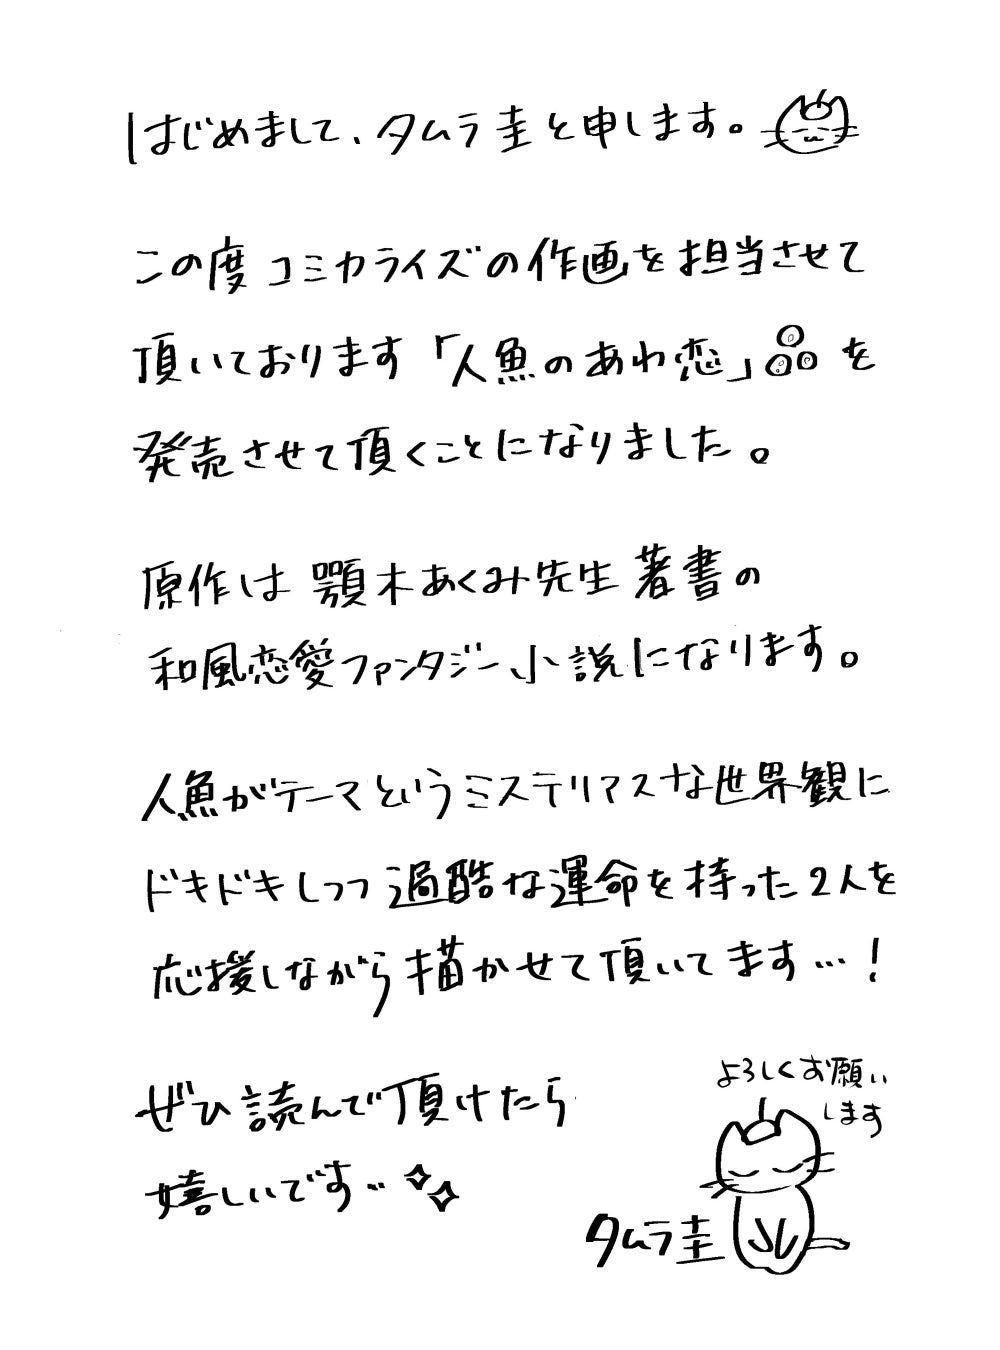 はじめまして、タムラ圭と申します。
この度コミカライズの作画を担当させて
頂いております「人魚のあわ恋」を
発売させて頂くことになりました。
原作は 顎木あくみ先生 著書の
和風恋愛ファンタジー小説になります。
人魚がテーマというミステリアスな世界観に
ドキドキしつつ過酷な運命を持った2人を
応援しながら描かせて頂いてます…!
ぜひ読んで頂けたら
嬉しいです‥
よろしくお願い
します
タムラ圭